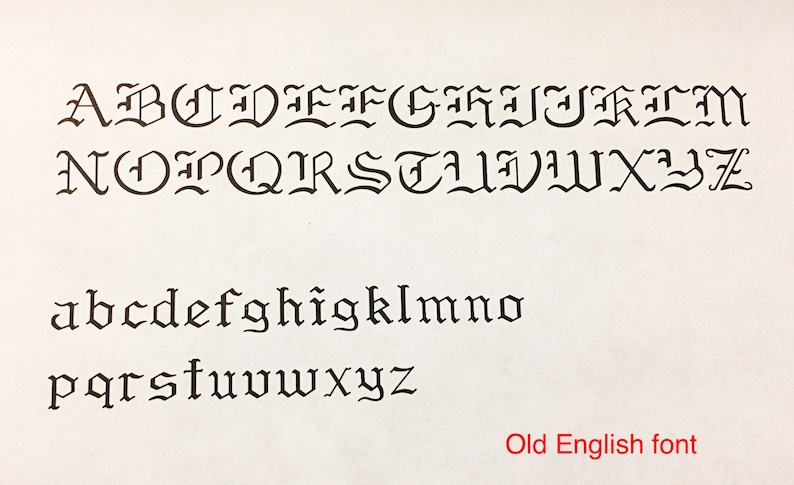 ABCDEFGHIJKLM
NOPQRSTUVWXYZ
abcdefghijklmno
pqrstuvwxyz
Old English font